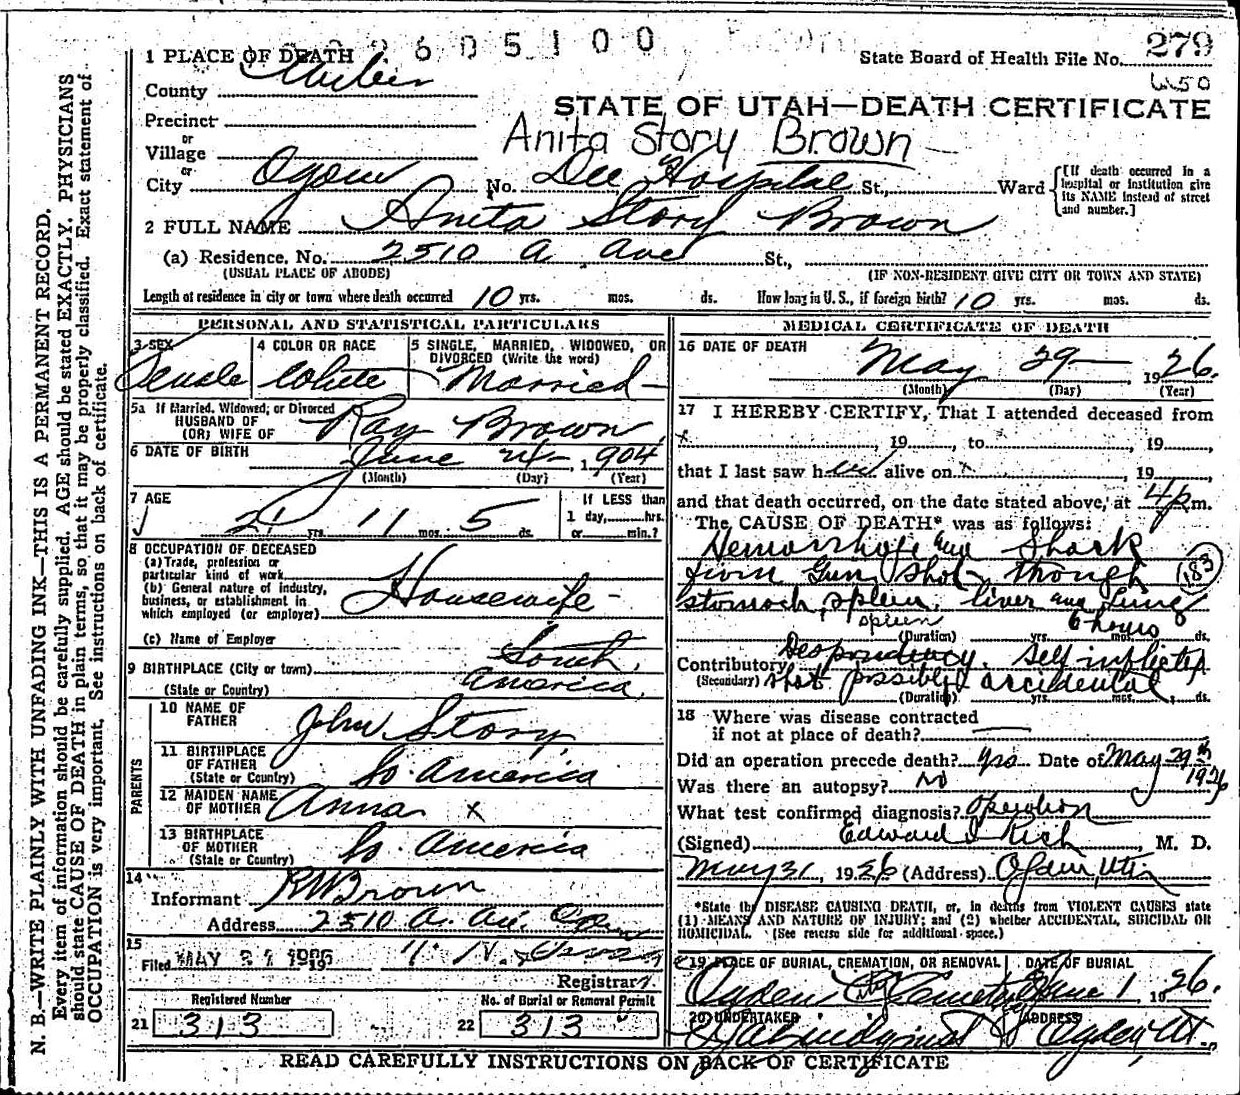 2 6 0 5 1 0 0
1 PLACE OF DEATH
State Board of Health File No. 279
County Weber
650
STATE OF UTAH—DEATH CERTIFICATE
Precinct
Anita Story Brown
or
Village
or
City Ogden No. Dee Hospital St., Ward
[If death occurred in a hospital or institution give its NAME instead of street and number.]
2 FULL NAME Anita Story Brown
(a) Residence. No. 2510 A Ave St.,
(USUAL PLACE OF ABODE) (IF NON-RESIDENT GIVE CITY OR TOWN AND STATE)
Length of residence in city or town where death occurred 10 yrs. mos. ds. How long in U. S., if foreign birth? 10 yrs. mos. ds.
PERSONAL AND STATISTICAL PARTICULARS
3 SEX Female
4 COLOR OR RACE White
5 SINGLE, MARRIED, WIDOWED, OR DIVORCED (Write the word) Married
5a If Married, Widowed, or Divorced
HUSBAND OF
(OR) WIFE OF Ray Brown
6 DATE OF BIRTH June 24 1904
(Month) (Day) (Year)
7 AGE 21 yrs. 11 mos. 5 ds.
If LESS than
1 day, hrs.
or min.?
8 OCCUPATION OF DECEASED
(a) Trade, profession or
particular kind of work
(b) General nature of industry,
business, or establishment in
which employed (or employer) Housewife
(c) Name of Employer
9 BIRTHPLACE (City or town) South
(State or Country) America
PARENTS
10 NAME OF
FATHER John Story
11 BIRTHPLACE
OF FATHER
(State or Country) So. America
12 MAIDEN NAME
OF MOTHER Anna x
13 BIRTHPLACE
OF MOTHER
(State or Country) So. America
14
Informant R W Brown
Address 2510 A. Ave. Ogden
15
Filed MAY 31 1926 19
Registrar
Registered Number
21 313
No. of Burial or Removal Permit
22 313
MEDICAL CERTIFICATE OF DEATH
16 DATE OF DEATH
May 29 1926.
(Month) (Day) (Year)
17 I HEREBY CERTIFY, That I attended deceased from
x , 19 , to , 19
that I last saw her alive on x , 19
and that death occurred, on the date stated above, at 4 p m.
The CAUSE OF DEATH* was as follows:
Hemorrhage and Shock
from Gun shot through 183
stomach, spleen, liver and Lung
spleen 6 hours
(Duration) yrs. mos. ds.
Contributory Despondency. Self inflicted
(Secondary) shot possibly accidental
(Duration) yrs. mos. ds.
18 Where was disease contracted
if not at place of death?
Did an operation precede death? yes Date of May 29th 1926
Was there an autopsy? No
What test confirmed diagnosis? Operation
(Signed) Edward I Rich, M. D.
May 31, 1926 (Address) Ogden, Utah
*State the DISEASE CAUSING DEATH, or, in deaths from VIOLENT CAUSES state
(1) MEANS AND NATURE OF INJURY; and (2) whether ACCIDENTAL, SUICIDAL OR
HOMICIDAL. (See reverse side for additional space.)
19 PLACE OF BURIAL, CREMATION, OR REMOVAL DATE OF BURIAL
Ogden City Cemetery June 1 1926.
20 UNDERTAKER ADDRESS
Ogden Ut.
READ CAREFULLY INSTRUCTIONS ON BACK OF CERTIFICATE
N. B.—WRITE PLAINLY WITH UNFADING INK—THIS IS A PERMANENT RECORD.
Every item of information should be carefully supplied. AGE should be stated EXACTLY. PHYSICIANS
should state CAUSE OF DEATH in plain terms, so that it may be properly classified. Exact statement of
OCCUPATION is very important. See instructions on back of certificate.